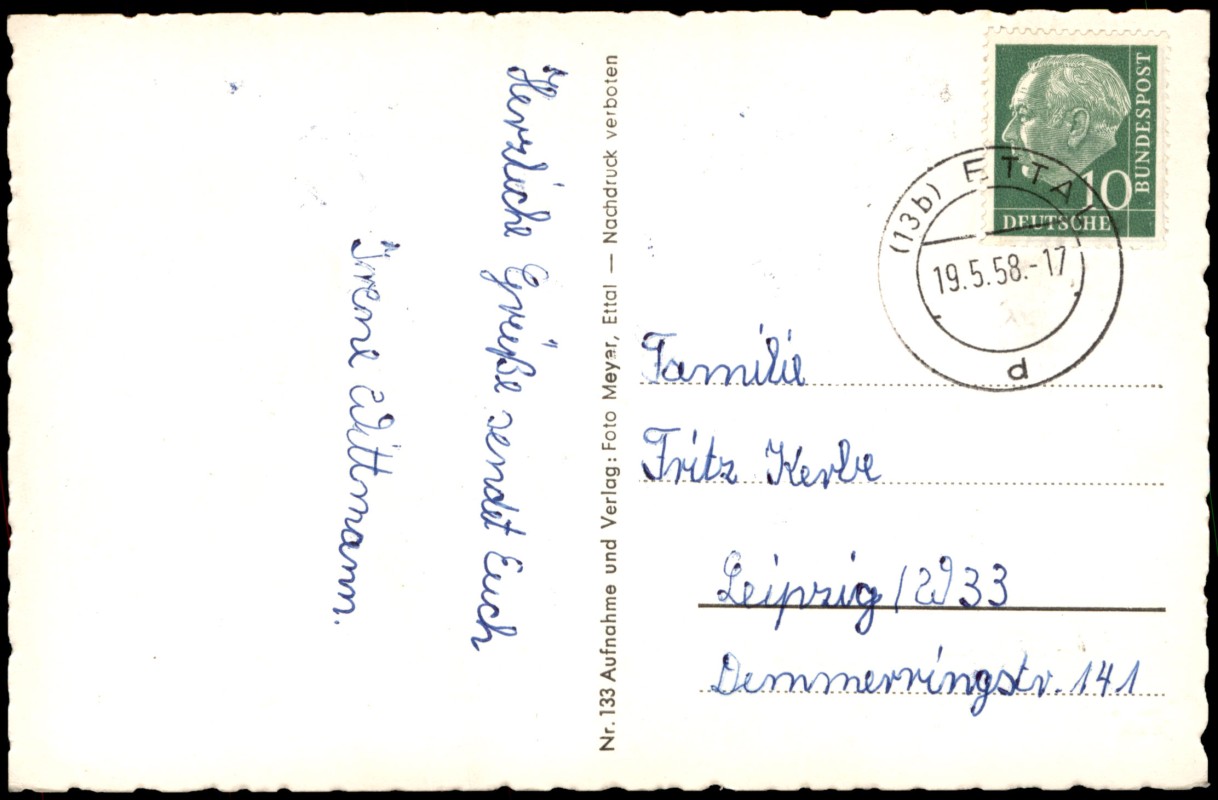 Herzliche Grüße sendet Euch
Irene Wittmann.
Nr. 133 Aufnahme und Verlag: Foto Meyer, Ettal — Nachdruck verboten
BUNDESPOST
10
DEUTSCHE
(13b) ETTAL
19.5.58.-17
d
Familie
Fritz Kerbe
Leipzig / W33
Demmerringstr. 141